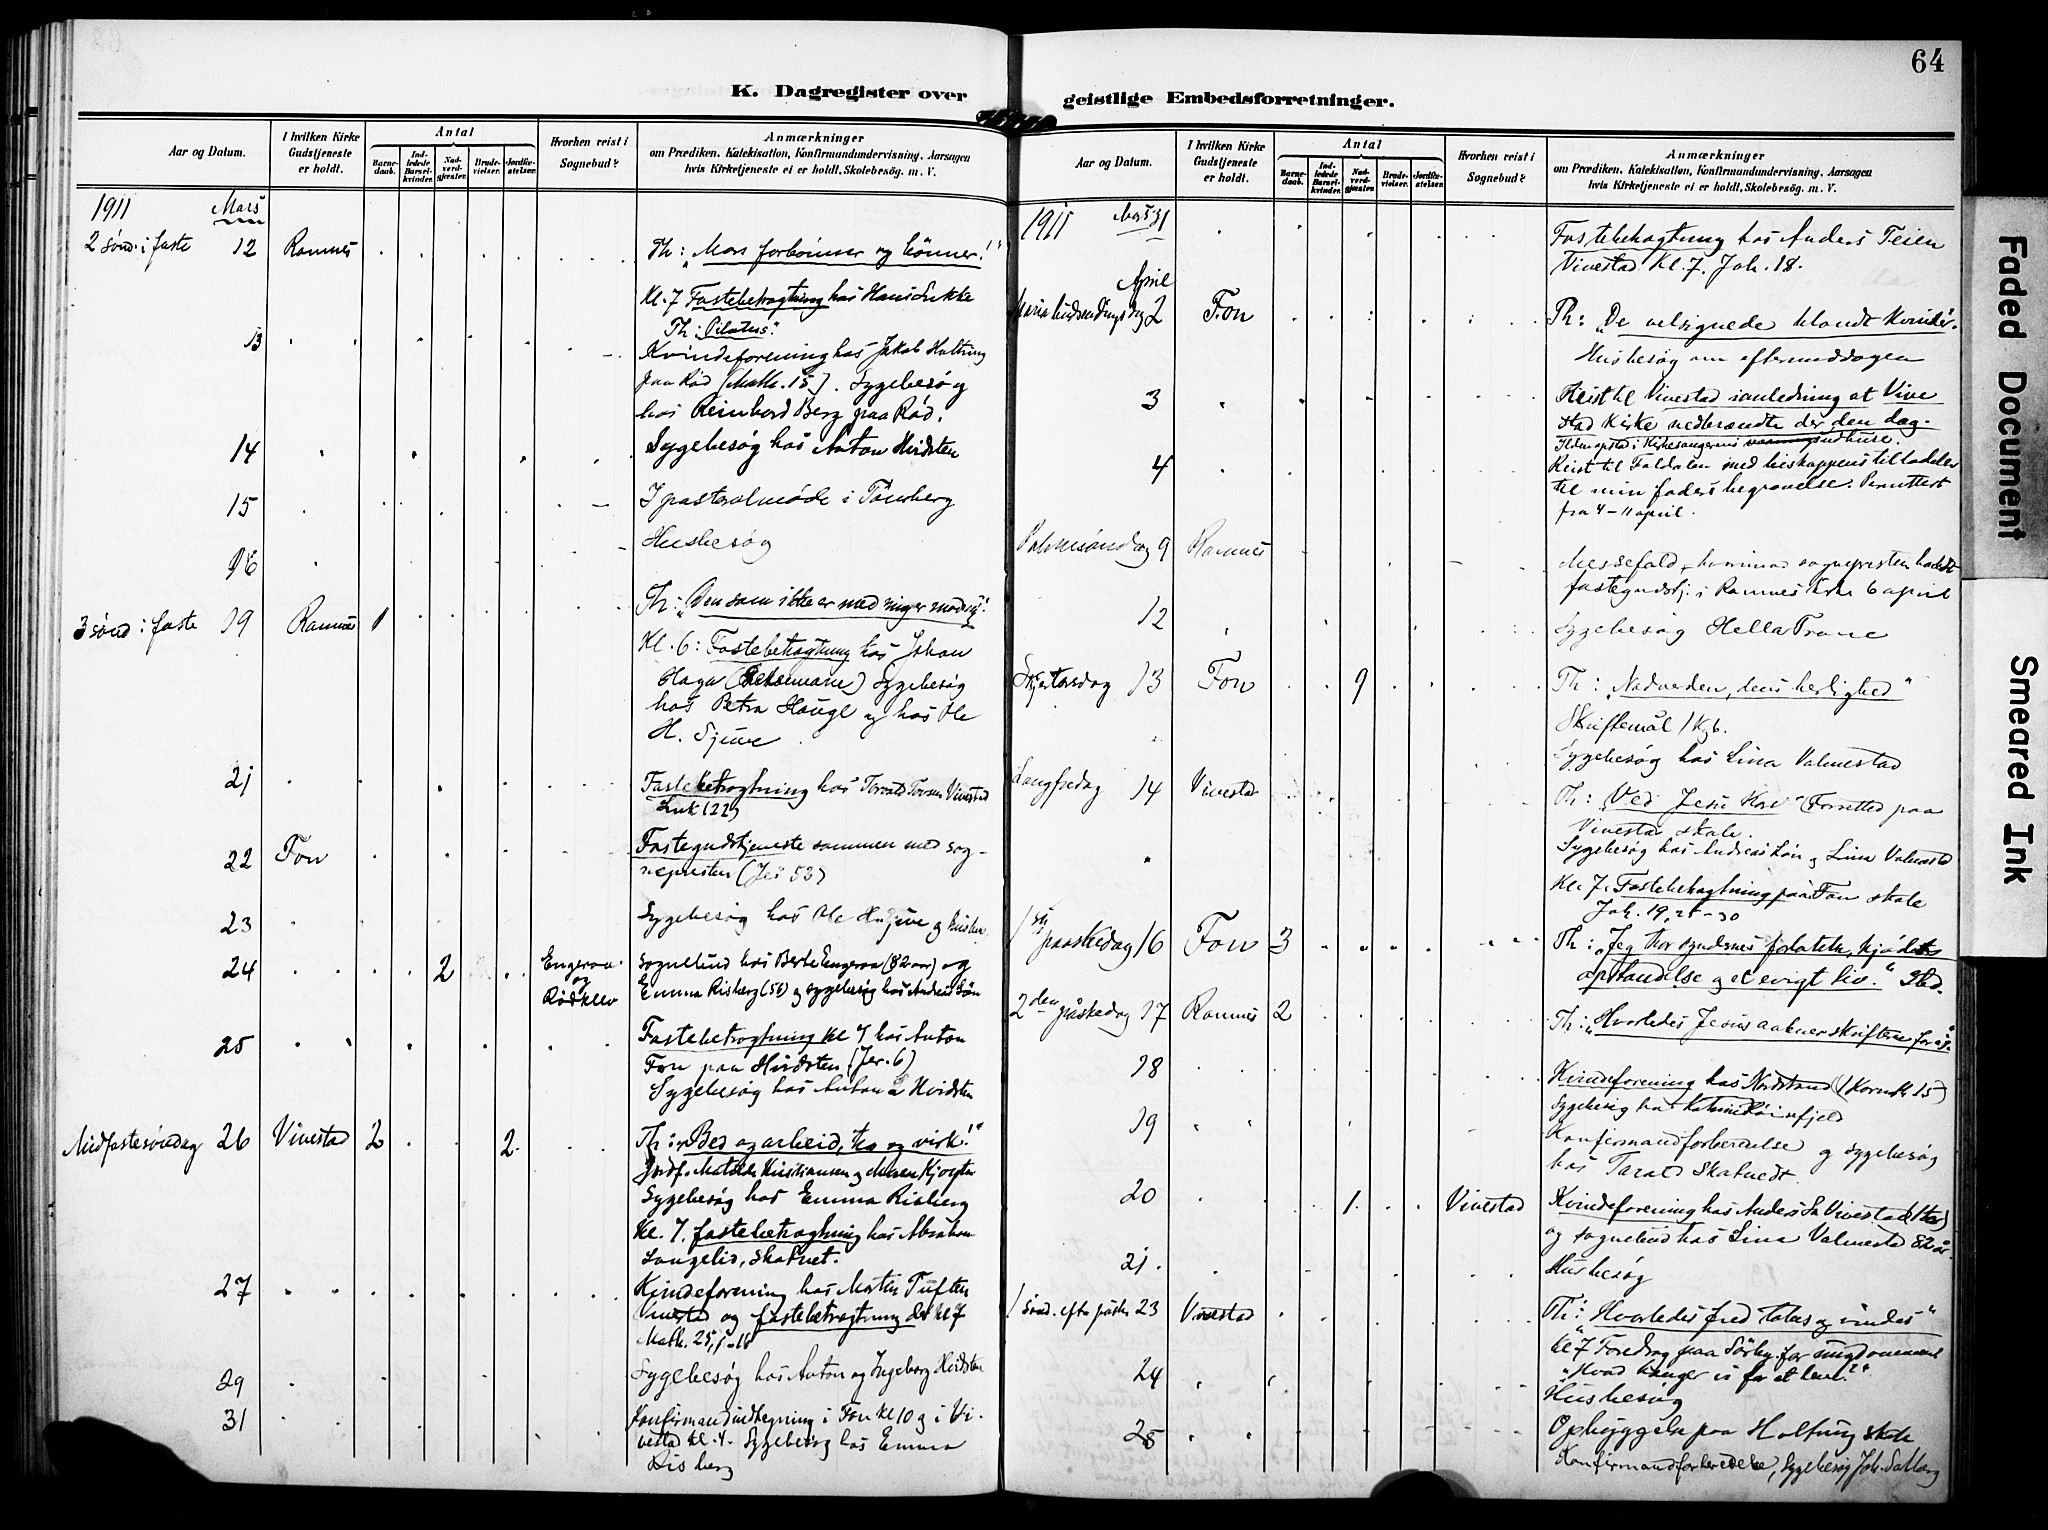 64
K. Dagregister over geistlige Embedsforretninger.
Aar og Datum.
I hvilken Kirke Gudstjeneste er holdt.
Antal
Barnedaab.
Indledede Barselkvinder.
Nadverdgjester.
Brudevielser.
Jordfæstelser.
Hvorhen reist i Sognebud?
Anmærkninger
om Prædiken, Katekisation, Konfirmandundervisning, Aarsagen
hvis Kirketjeneste ei er holdt, Skolebesög. m. V.
1911 Mars
2 sönd. i faste 12 Ramnes Th: "Mors forbönner og bönner!"
Kl. 7 Fastebetragtning hos Hans
Th: Pilatus."
13 Kvindeforening hos Jakob Holtung
paa Rød (Math. 15). Sygebesøg
hos Reinhord Berg paa Rød.
14 Sygebesøg hos Anton Hvidsten
15 I pastoralmøde i Tönsberg
16 Husbesøg
3 sönd i faste 19 Ramnes 1 Th: "Den som ikke er med mig er mod mig".
Kl. 6: Fastebetragtning hos Johan
Haga (Getsemane) Sygebesøg
hos Petra Hauge og hos Ole
H. Sjuve
21 Fastebetragtning hos Vivestad
Luk (22)
22 Fon Fastegudstjeneste sammen med sog-
nepresten (Jes 53)
23 Sygebesøg hos Ole H. Sjuve og
24 2 Engeraa og Rødklev Sognebud hos Berte Engeraa (82 aar) og
Emma Risberg (56) og sygebesøg hos Andreas Løn
25 Fastebetragtning kl 7 hos Anton
Fon paa Hvidsten (Jer. 6)
Sygebesøg hos Anton Hvidsten
Midfastesöndag 26 Vivestad 2 2 Th: "Bed og arbeid, tro og virk!"
Jordf. Matilde Kristiansen og Maren
Sygebesøg hos Emma Risberg
Kl. 7. fastebetragtning hos Abraham
Langelid, Skatvet.
27 Kvindeforening hos Morten Tuften
Vivestad og fastebetragtning der kl 7
Math. 25,
29 Sygebesøg hos Anton og Ingeborg Hvidsten
31 Konfirmandindtegning i Fon kl 10 og i Vi-
vestad kl. 4. Sygebesøg hos Emma
Risberg
Aar og Datum.
I hvilken Kirke Gudstjeneste er holdt.
Antal
Barnedaab.
Indledede Barselkvinder.
Nadverdgjester.
Brudevielser.
Jordfæstelser.
Hvorhen reist i Sognebud?
Anmærkninger
om Prædiken, Katekisation, Konfirmandundervisning, Aarsagen
hvis Kirketjeneste ei er holdt, Skolebesög. m. V.
1911 Mars 31 Fastebetragtning hos Anders Teien
Vivestad Kl. 7. Joh. 18.
April
Maria budskabsdag 2 Fon Th: "De velsignede blandt kvinder.
Husbesøg om eftermiddagen
3 Reist til Vivestad i anledning at Vive
stad Kirke nedbrændte der den dag.
Ilden opstod i Kirkesangerens udhuse.
4 Reist til med biskoppens tilladelse
til min faders begravelse. Permittert
fra 4-11 april.
Palmesöndag 9 Ramnes Messefald, hvorimod sognepresten holdt
fastegudstj. i Ramnes kirke 6 april
12 Sygebesøg Hella Trane
Skjertorsdag 13 Fon 9 Th: "Nadverden, dens herlighed"
Skriftemål 1 Kg 6.
Sygebesøg hos Lina Valmestad
Langfredag 14 Vivestad Th: "Ved Jesu Kors" (Forrettet paa
Vivestad skole.
Sygebesøg hos Andreas Løn og Lina Valmestad
Kl. 7. Fastebetragtning på Fon skole
Joh. 19, 25-30
1ste paaskedag 16 Fon 3 Th: "Jeg tror syndernes forlatelse, kjødets
opstandelse og et evigt liv."
2den påskedag 17 Ramnes 2 Th: "Hvorledes Jesus aabner skriftene for os"
18 Kvindeforening hos Nordstrand (1 Korint 15)
Sygebesøg hos
19 Konfirmandforberedelse og sygebesøg
hos Tarald Skatvedt.
20 1 Vivestad Kvindeforening hos Anders Vivestad
og sognebud hos Lina Valmestad 82 år.
21. Husbesøg
1 sönd. efter påske 23 Vivestad Th: "Hvorledes fred tabes og vindes"
Kl 7 Foredrag paa Sørby for ungdommen
"Hvad trænger vi for at leve?"
24 Husbesøg
25 Opbyggelse paa Holtung skole
Konfirmandforberedelse, Sygebesøg Joh.
Faded Document
Smeared Ink